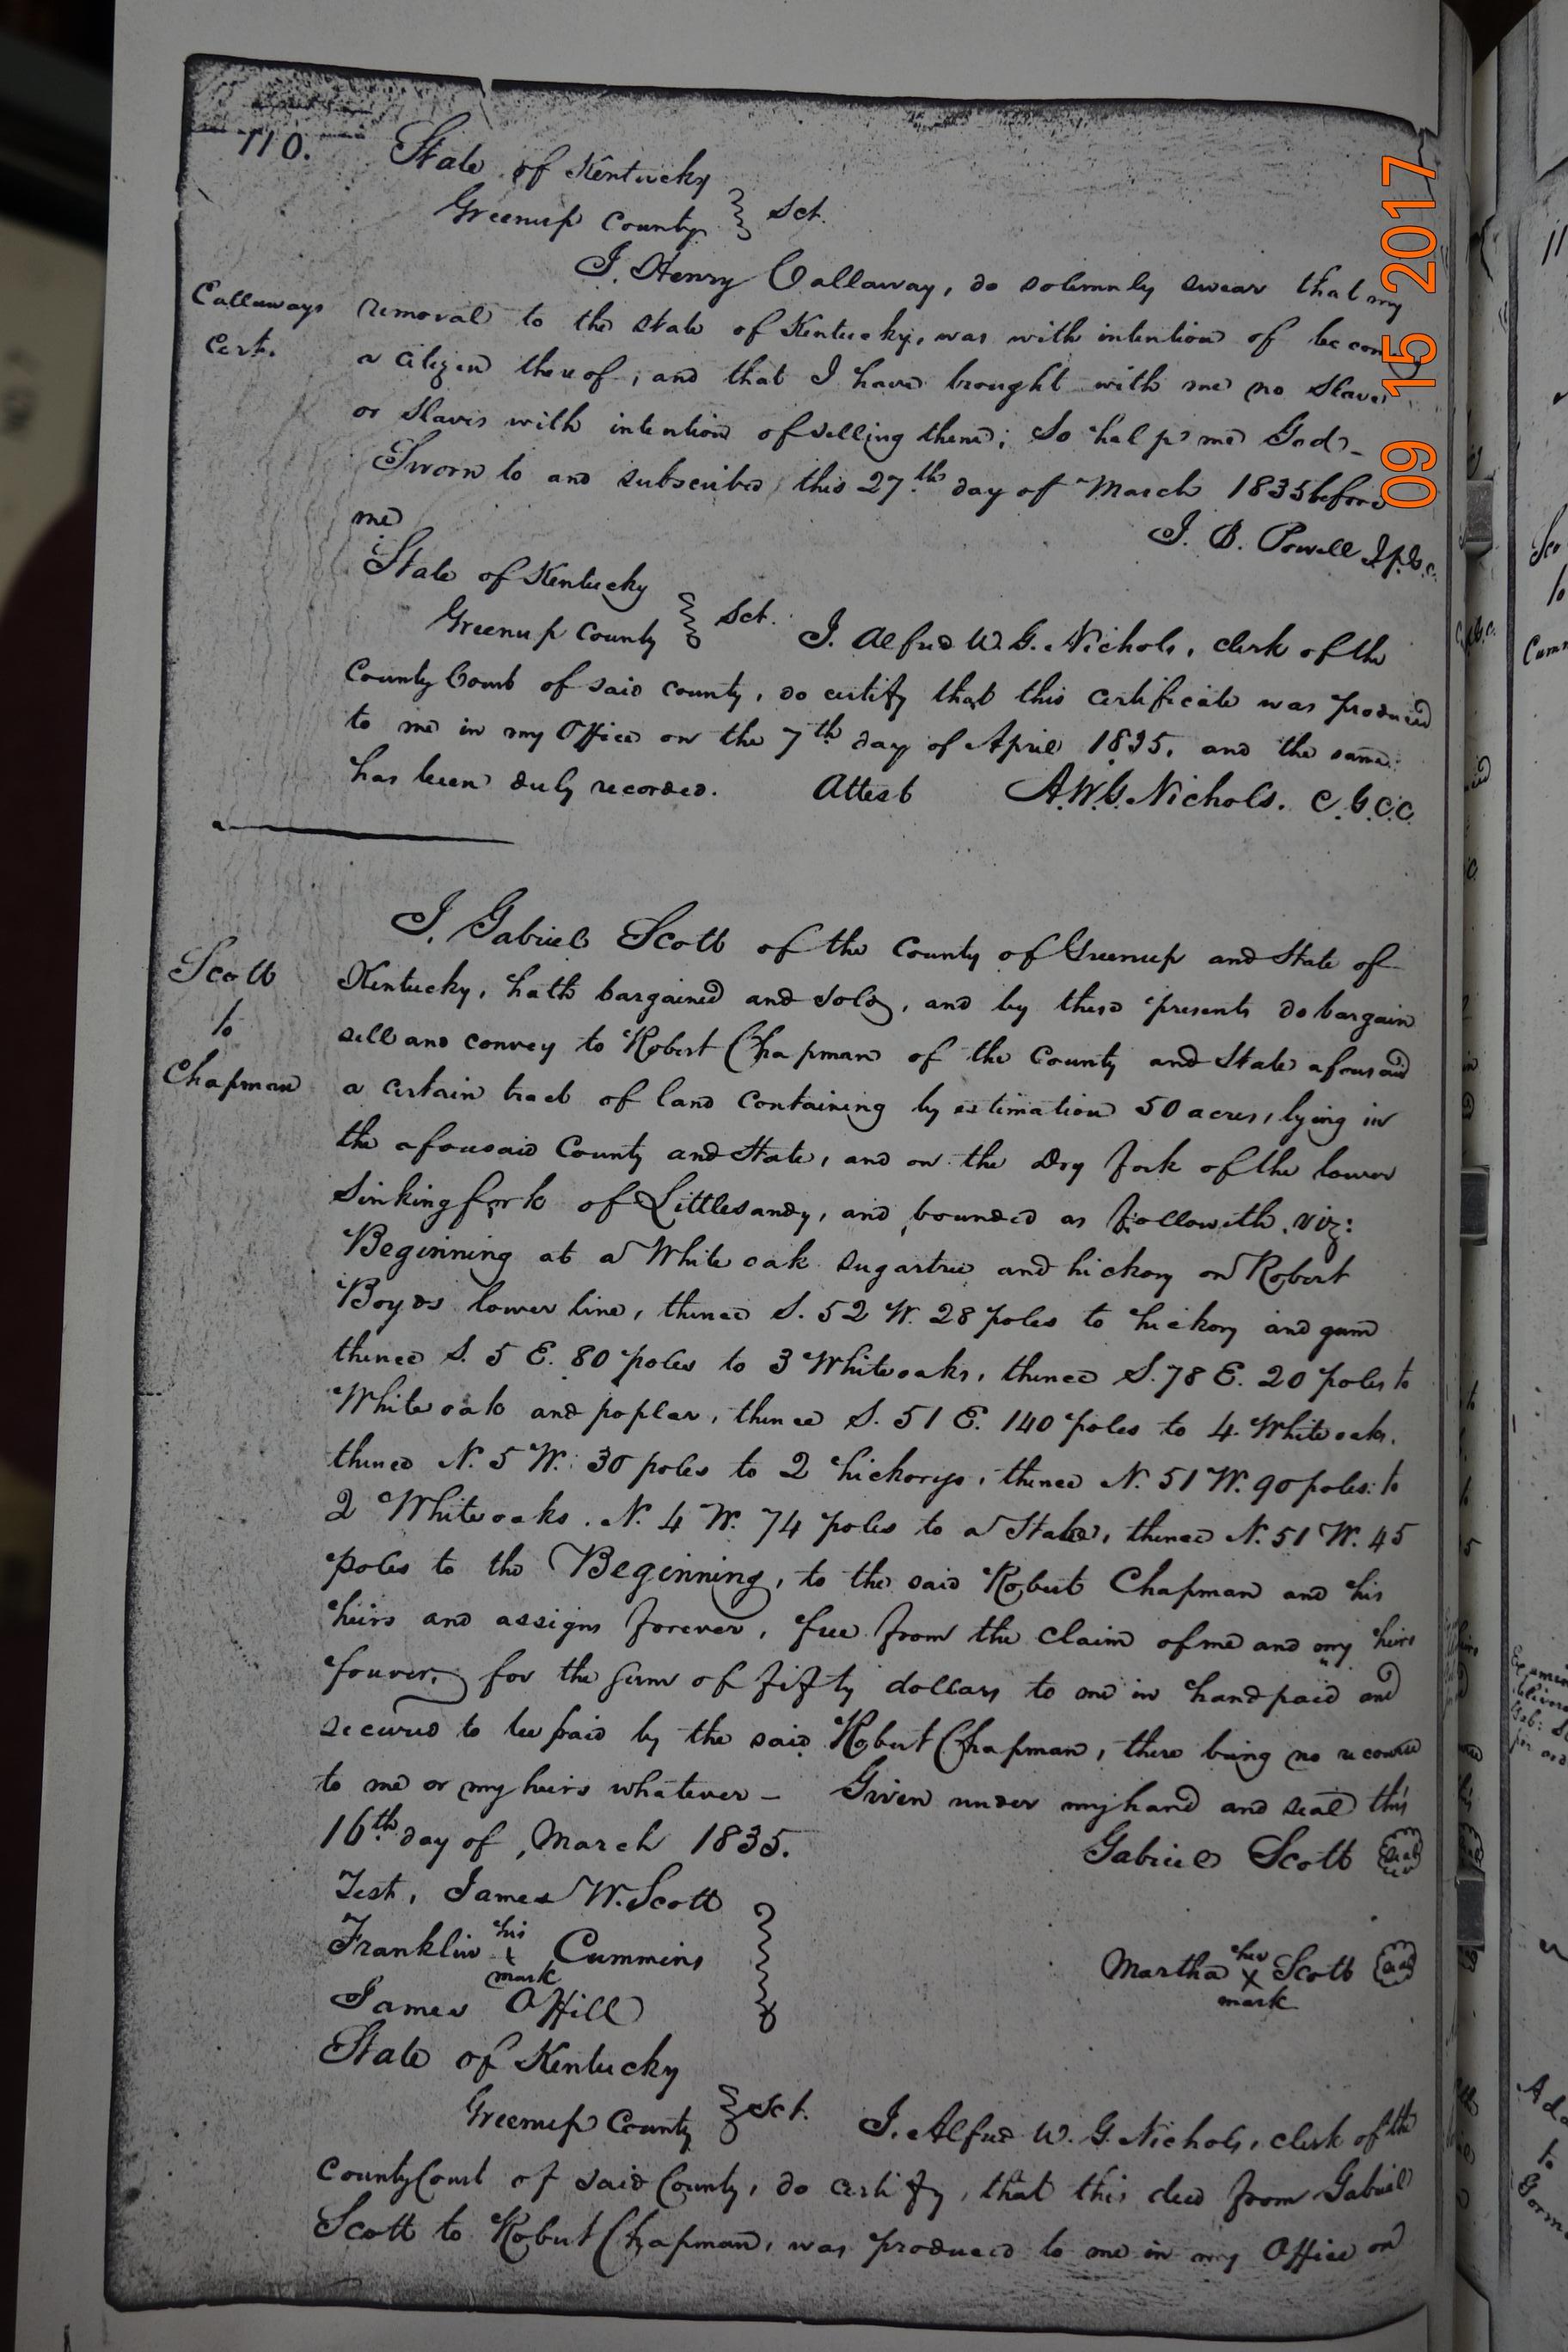 110.
State of Kentucky
Greenup County } Sct.
I. Henry Callaway, do solemnly swear that my
Callaways
Cert.
removal to the state of Kentucky, was with intention of becom
a citizen thereof, and that I have brought with me no Slave
or Slaves with intention of selling them; So help me God
Sworn to and subscribed, this 27th day of March 1835 before
me
J. B. Powell J.p.G.c.
State of Kentucky
Greenup County } Sct. I. Alfred W. G. Nichols, clerk of the
County Court of said county, do certify that this certificate was produced
to me in my Office on the 7th day of April 1835. and the same
has been duly recorded. Attest A.W.G. Nichols. C.G.C.C.
I. Gabriel Scott of the County of Greenup and State of
Scott
to
Chapman
Kentucky, hath bargained and sold, and by these presents do bargain
sell and convey to Robert Chapman of the County and State aforesaid
a certain tract of land containing by estimation 50 acres, lying in
the aforesaid County and State, and on the dry fork of the lower
Sinking fork of Littlesandy, and bounded as followith, viz:
Beginning at a White oak sugartree and hickory on Robert
Boyds lower line, thence S. 52 W. 28 poles to hickory and gum
thence S. 5 E. 80 poles to 3 Whiteoaks, thence S. 78 E. 20 poles to
White oak and poplar, thence S. 51 E. 140 poles to 4 Whiteoaks.
thence N. 5 W. 30 poles to 2 hickorys, thence N. 51 W. 90 poles to
2 Whiteoaks. N. 4 W. 74 poles to a Stake, thence N. 51 W. 45
poles to the Beginning, to the said Robert Chapman and his
heirs and assigns forever, free from the claim of me and my heirs
forever, for the sum of fifty dollars to me in hand paid and
secured to be paid by the said Robert Chapman, there being no recourse
to me or my heirs whatever - Given under my hand and seal this
16th day of March 1835. Gabriel Scott Seal
Test, James W. Scott
Franklin his x mark Cummins
Martha her x mark Scott Seal
James O Hill
State of Kentucky
Greenup County } Sct. I. Alfred W. G. Nichols, clerk of the
County Court of said County, do certify, that this deed from Gabriel
Scott to Robert Chapman, was produced to me in my Office on
09 15 2017